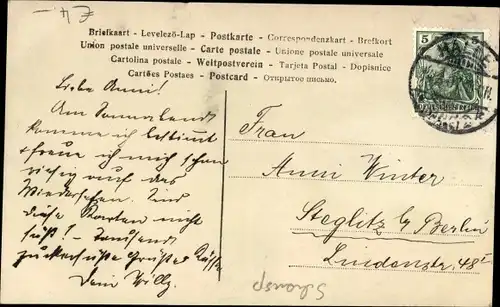 Briefkaart - Levelező-Lap - Postkarte - Correspondenzkart - Brefkort
Union postale universelle - Carte postale - Unione postale universale
Cartolina postale - Weltpostverein - Tarjeta Postal - Dopisnice
Cartões Postaes - Postcard - Открытое письмо.
5
HALLE
Liebe Anni!
Am Sonnabend
komme ich bestimmt
+ freue ich mich schon
riesig auf das
Wiedersehen. Sind
diese Karten nicht
süß! - Tausend
zuckersüße Grüße + Küsse
Dein Willy.
Frau
Anni Winter
Steglitz b/ Berlin
Lindenstr. 48I